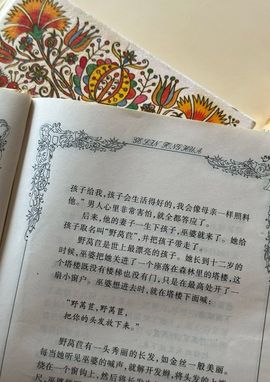 孩子给我，孩子会生活得好的，我会像母亲一样照料
他。”男人心里非常害怕，就全都答应了。
后来，他的妻子一生下孩子，巫婆就来了。她给
孩子取名叫“野莴苣”，并把孩子带走了。
野莴苣是世上最漂亮的孩子。她长到十二岁的
时候，巫婆把她关进了一个座落在森林里的塔楼，这
个塔楼既没有楼梯也没有门，只是在最高处开了一
扇小窗户。巫婆想进去时，就在塔楼下面喊：
“野莴苣，野莴苣，
把你的头发放下来。”
野莴苣有一头秀丽的长发，如金丝一般美丽。
每当她听见巫婆的喊声，就解开发辫，将头发的上
绕在一个窗钩上，然后将
尺，巫婆